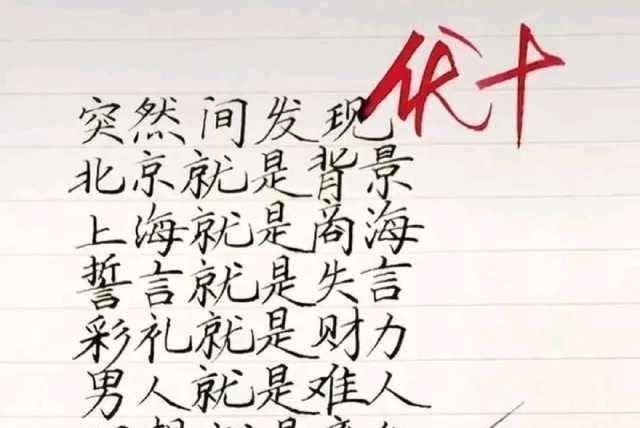 优+
突然间发现
北京就是背景
上海就是商海
誓言就是失言
彩礼就是财力
男人就是难人